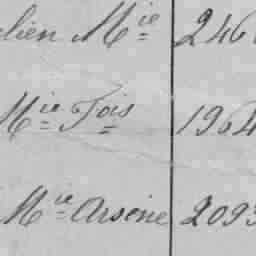 lien Mie 246
Mie Fois 1964
Mie Arsène 2093